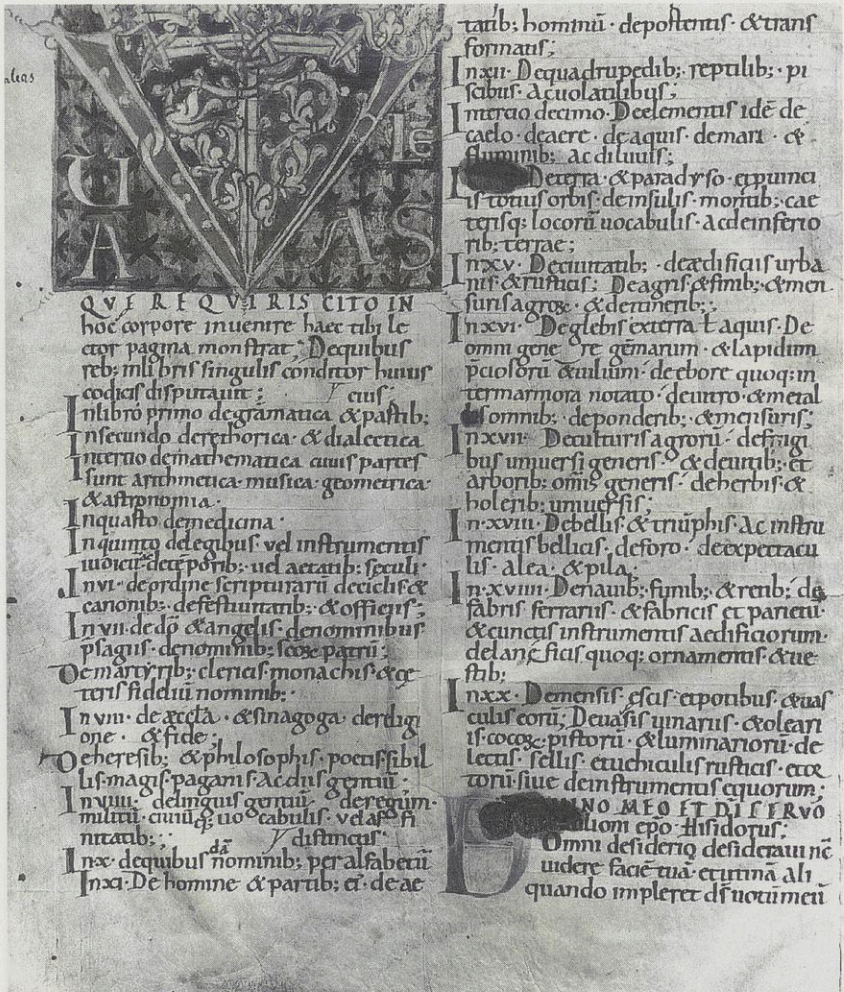 alias
V
U A L E A S
QVE REQVIRIS CITO IN
hoc corpore inuenire haec tibi le
ctor pagina monstrat; Dequibus
reb; inlibris singulis conditor huius
codicis disputauit; eius;
Inlibro primo degramatica & partib;
Insecundo derethorica · & dialectica
Intertio demathematica cuius partes
sunt arithmetica · musica · geometrica ·
& astronomia ·
Inquarto demedicina ·
Inquinto delegibus vel instrumentis
iudicū detēporib; uel aetatib; seculi ·
In vi · de ordine scripturarū deciclis &
canonib; defestiuitatib; · & officiis;
In vii · de dō & angelis · denominibus
psagiis · denominib; scōꝝ patrū;
De martyrib; clericis monachis & ce
teris fideliū nominib; ·
In viii · de æccła · & sinagoga · dereligi
one · & fide;
De heresib; & philosophis · poetis sibil
lis · magis · paganis · Ac diis gentiū ·
In viiii · delinguis gentiū · deregum ·
militū · ciuiūq; uocabulis · vel affi
nitatib; ; distinctis ·
In x · dequibus dā nominib; per alfabetū
In xi · De homine & partib; ei · de ae
tatib; hominū · deportentis · & trans
formatis;
In xii · Dequadrupedib; · reptilib; · pi
scibus · Ac uolatilibus;
Intercio decimo · De elementis idē de
caelo · deaere · de aquis · demari · &
fluminib; ac diluuiis;
Deterra · & paradyso · et puinci
is totius orbis · deinsulis · montib; · cae
terisq; locorū uocabulis · Ac deinferio
rib; terrae;
In xv · Deciuitatib; · deædificiis urba
nis & rusticis; De agris & finib; · & men
suris agroꝝ · & deitinerib;
In xvi · De glebis ex terra ł aquis · De
omni genere gēmarum · & lapidum
pciosorū & uilium · de ebore quoq; in
ter marmora notato · deuitro · & metal
lis omnib; · deponderib; · & mensuris;
In xvii · Deculturis agrorū · defrugi
bus uniuersi generis · & deuitib; · et
arborib; omīs generis · deherbis · &
holerib; uniuersis;
In · xviii · Debellis & triūphis · Ac instru
mentis bellicis · deforo · de expectacu
lis · alea · & pila ·
In · xviiii · Denauib; · funib; · & retib; · de
fabris ferrariis · & fabricis et parietū ·
& cunctis instrumentis aedificiorum ·
delanęficiis quoq; ornamentis · & ue
stib;
In xx · Demensis · escis · et potibus · & uas
culis eorū; Deuasis uinariis · & oleari
is · cocoꝝ · pistorū · & luminariorū · de
lectis · sellis · et uehiculis rusticis · et or
torū · siue deinstrumentis equorum;
D MINO MEO ET DI SERVO
ulioni epō Hisidorus;
Omni desiderio desideraui nc
uidere faciē tuā · et utinā ali
quando impleret dš uotū meū